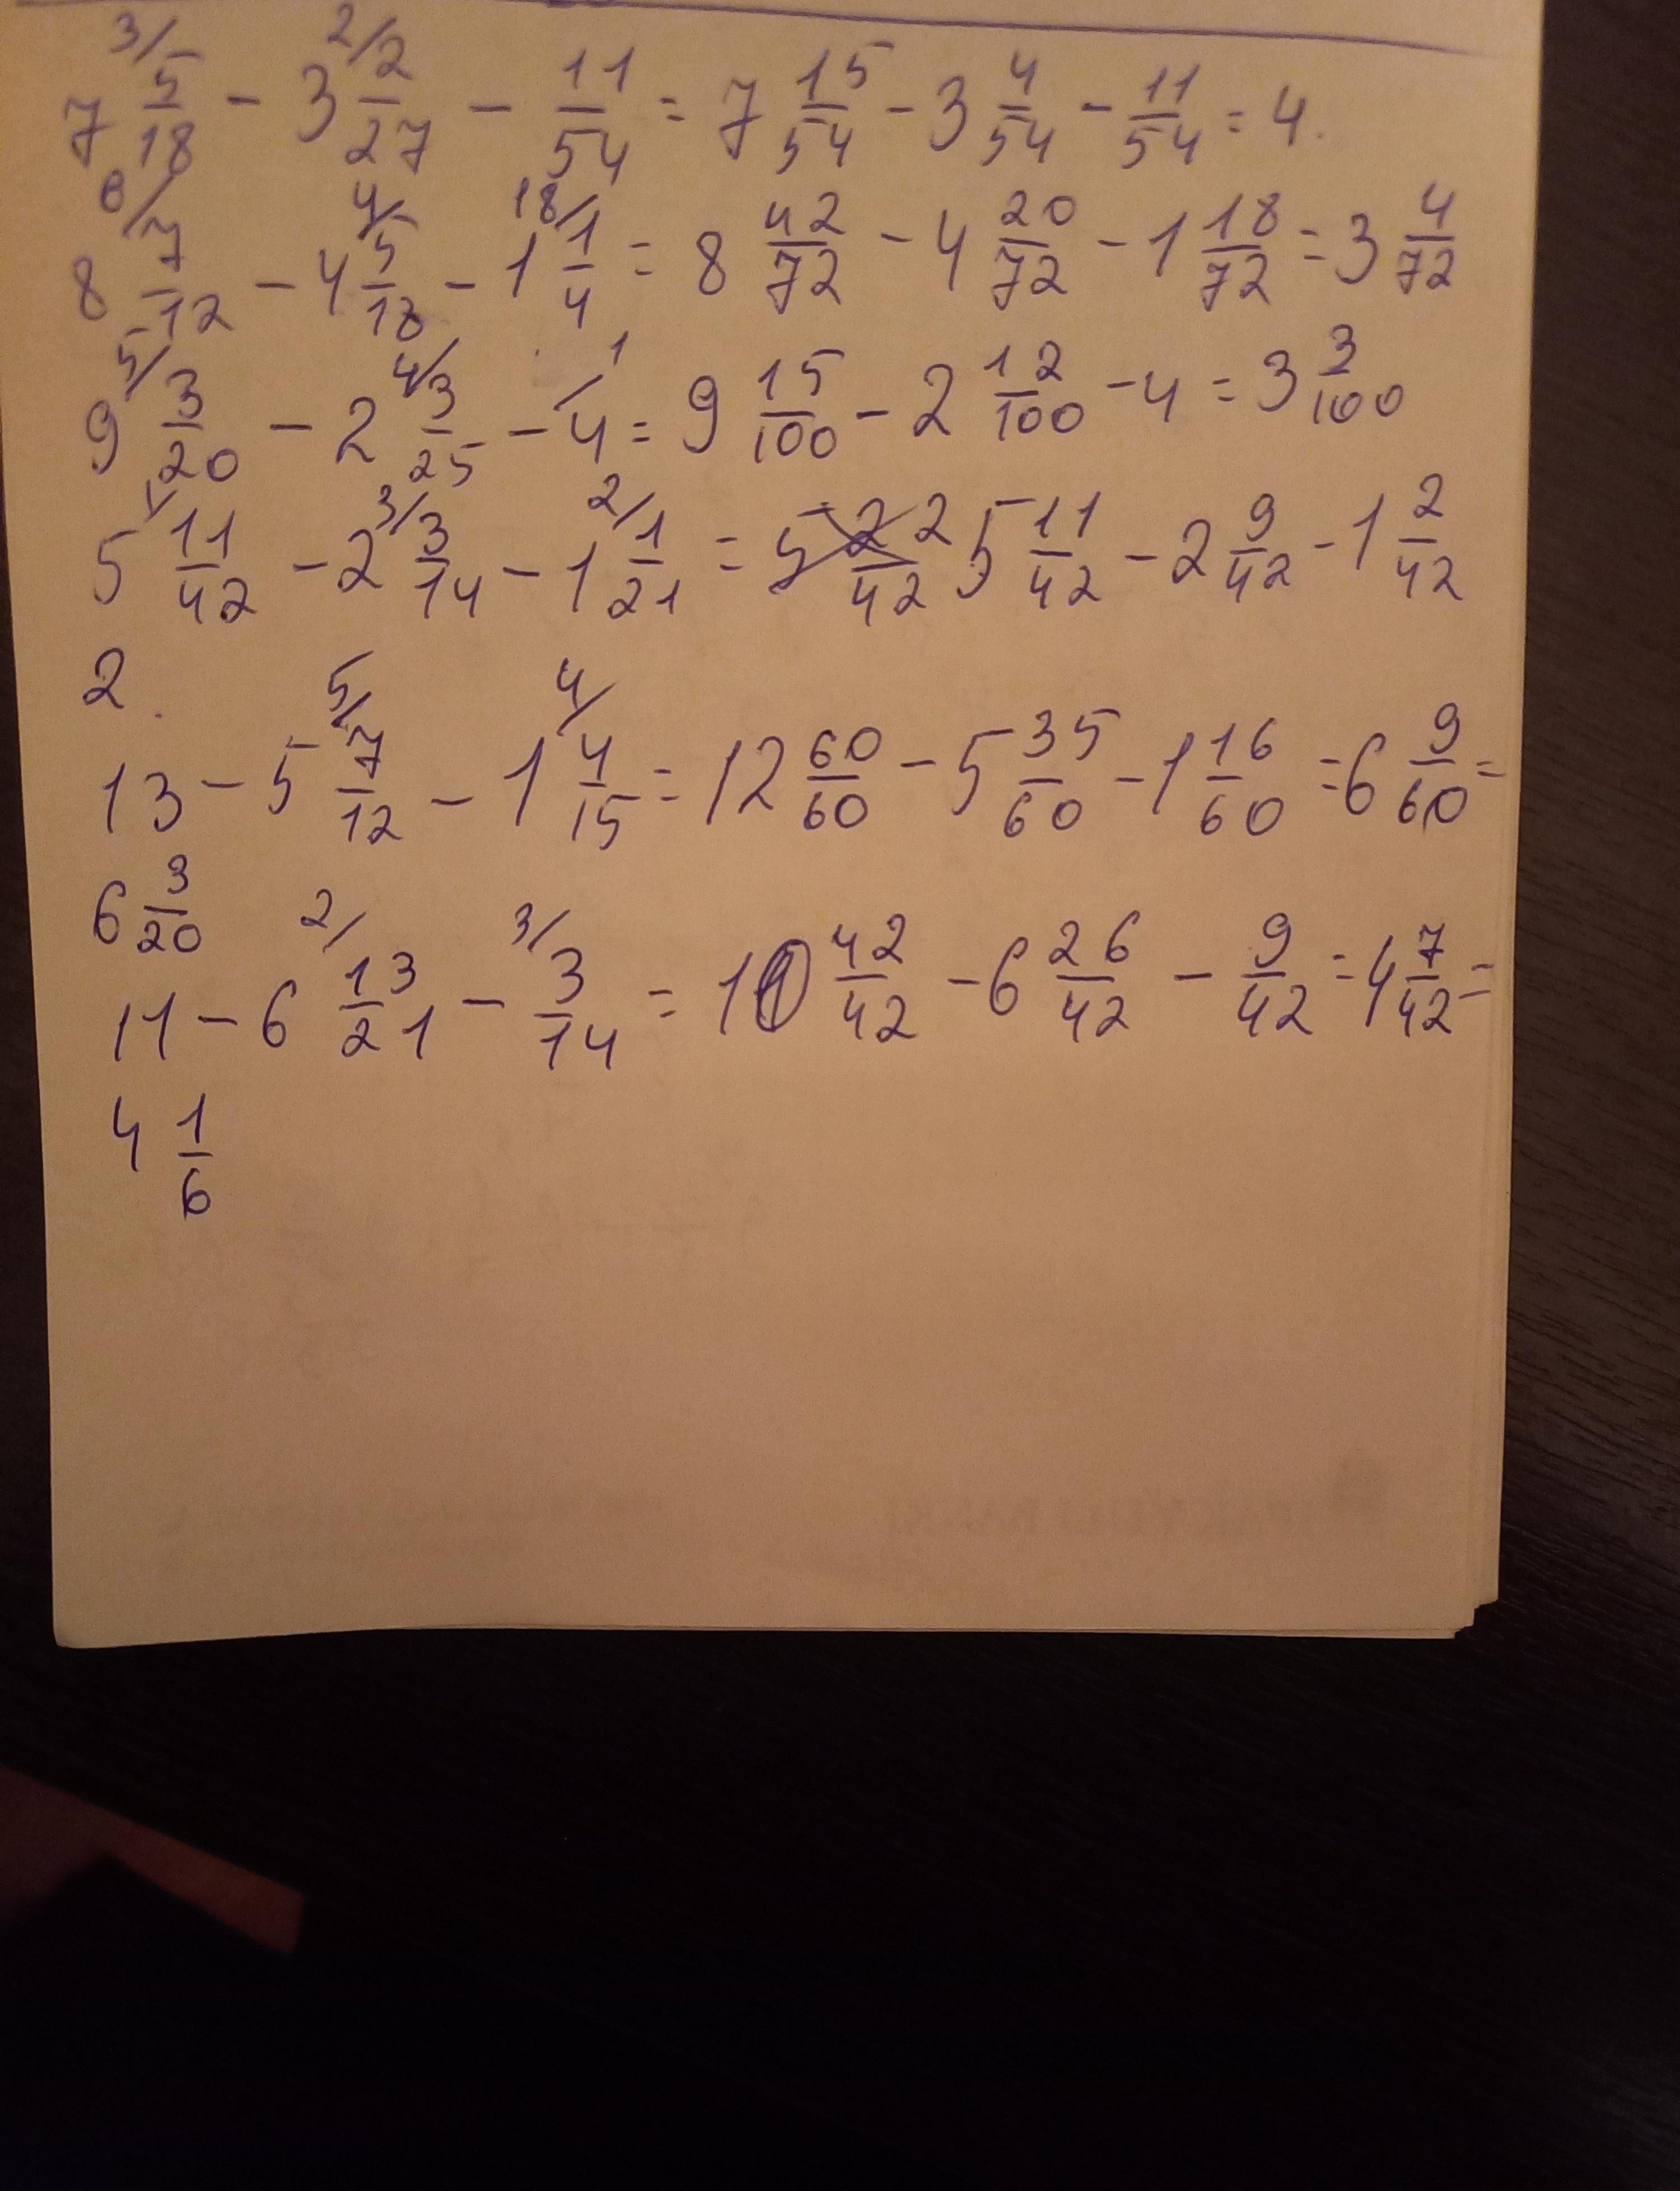 7 3/ 5/18 - 3 2/ 2/27 - 11/54 = 7 15/54 - 3 4/54 - 11/54 = 4.
8 6/ 7/12 - 4 4/ 5/18 - 1 18/ 1/4 = 8 42/72 - 4 20/72 - 1 18/72 = 3 4/72
9 5/ 3/20 - 2 4/ 3/25 - 4 = 9 15/100 - 2 12/100 - 4 = 3 3/100
5 11/42 - 2 3/ 3/14 - 1 2/ 1/21 = 5 22/42 5 11/42 - 2 9/42 - 1 2/42
2
13 - 5 5/ 7/12 - 1 4/ 4/15 = 12 60/60 - 5 35/60 - 1 16/60 = 6 9/60 =
6 3/20
11 - 6 2/ 13/21 - 3/ 3/14 = 10 42/42 - 6 26/42 - 9/42 = 4 7/42 =
4 1/6